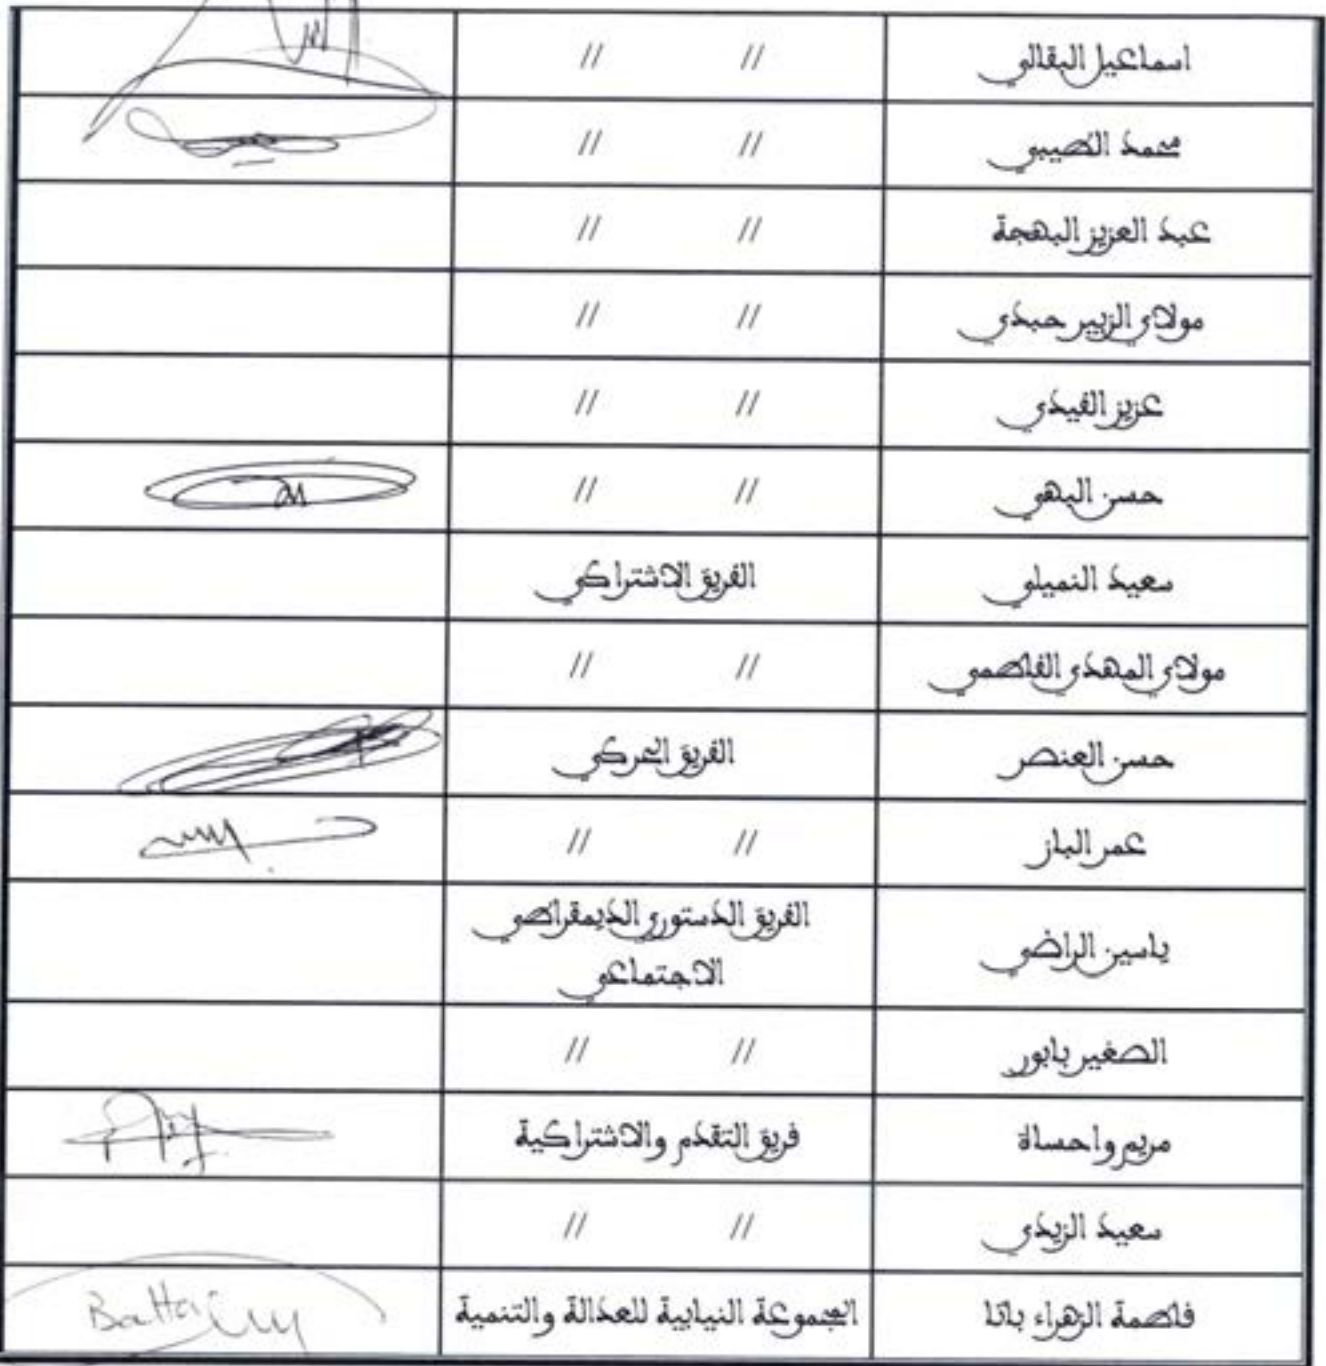 اسماعيل البقالي // //
محمد الطيبي // //
عبد العزيز البهجة // //
مولاي الزبير حبدي // //
عزيز الفيدي // //
حسن البهي // //
سعيد النميلي الفريق الاشتراكي
مولاي المهدي الفاطمي // //
حسن العنصر الفريق الحركي
عمر الباز // //
ياسين الراضي الفريق الدستوري الديمقراطي
الاجتماعي
الصغير بابور // //
مريم واحساة فريق التقدم والاشتراكية
سعيد الزيدي // //
فاطمة الزهراء باتا المجموعة النيابية للعدالة والتنمية Batta